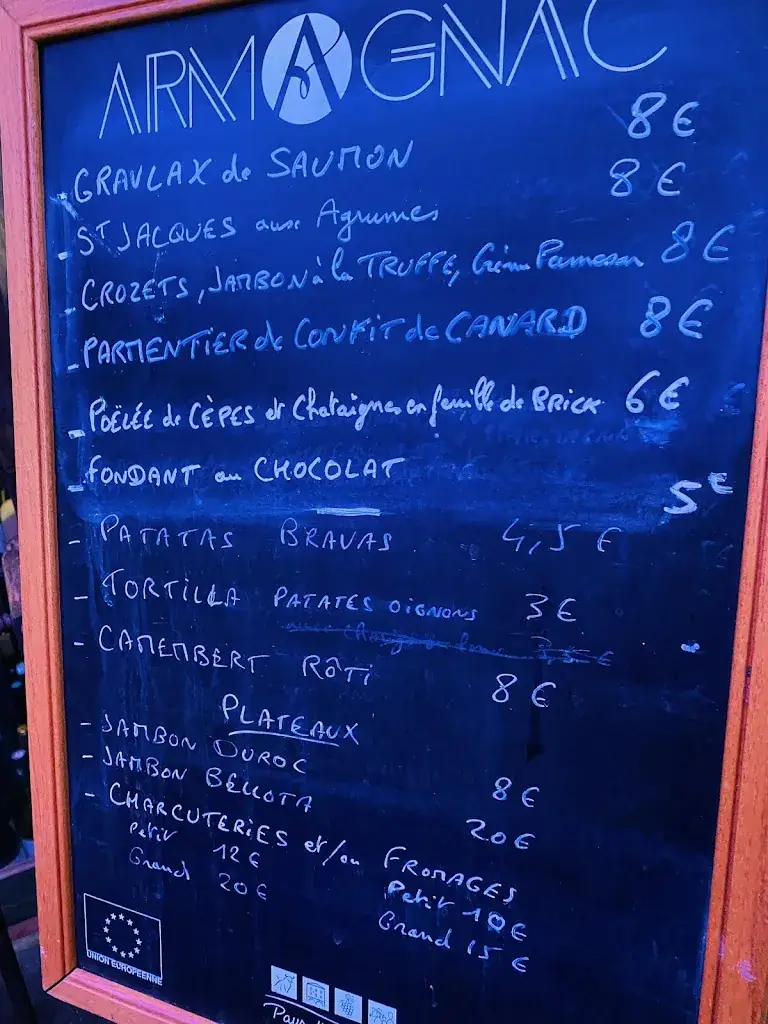 ARMAGNAC
- GRAVLAX de SAUMON 8€
- ST JACQUES aux Agrumes 8€
- CROZETS, JAMBON à la TRUFFE, Crème Parmesan 8€
- PARMENTIER de CONFIT de CANARD 8€
- POËLÉE de CÈPES et Chataignes en feuille de BRICK 6€
- FONDANT au CHOCOLAT 5€
- PATATAS BRAVAS 4,5 €
- TORTILLA PATATES OIGNONS 3€
- CAMEMBERT RÔTI 8€
PLATEAUX
- JAMBON DUROC 8€
- JAMBON BELLOTA 20€
- CHARCUTERIES et/ou FROMAGES
Petit 12€ Petit 10€
Grand 20€ Grand 15€
UNION EUROPEENNE